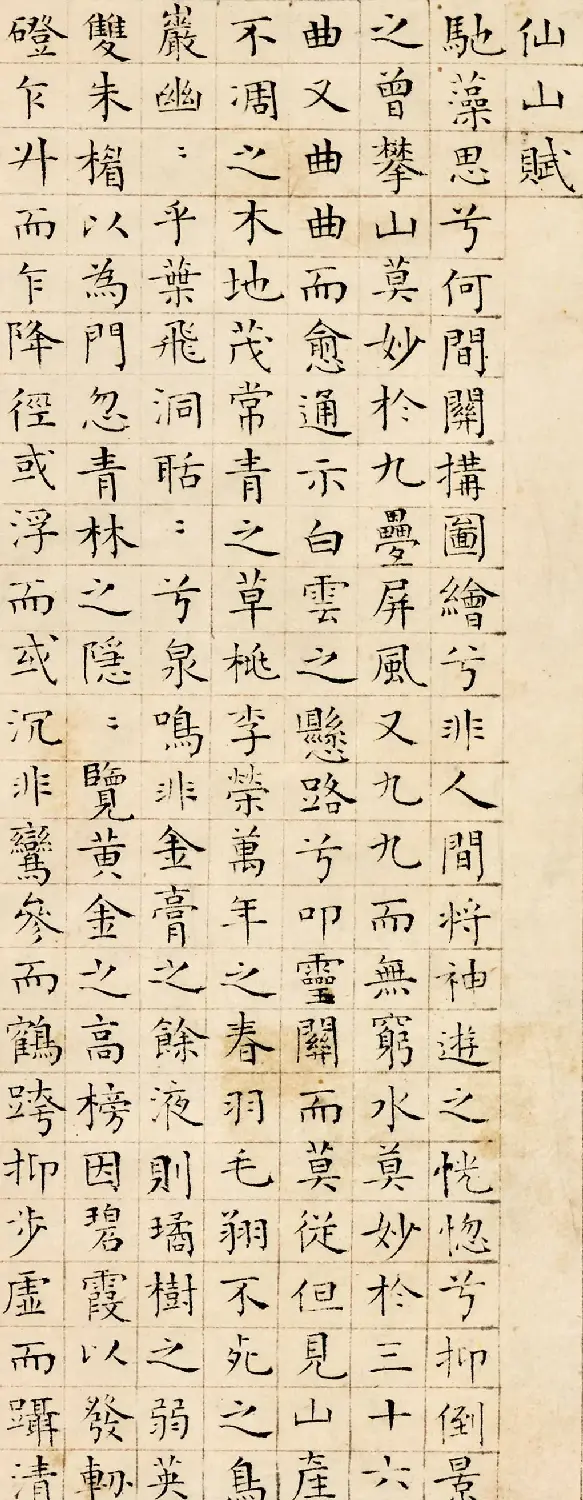 仙山賦
馳藻思兮何間關搆圖繪兮非人間将神遊之恍惚兮抑倒景
之曾攀山莫妙於九疊屏風又九九而無窮水莫妙於三十六
曲又曲曲而愈通示白雲之懸路兮叩靈關而莫從但見山產
不凋之木地茂常青之草桃李榮萬年之春羽毛翔不死之鳥
巖幽：乎葉飛洞聒：兮泉鳴非金膏之餘液則璚樹之弱英
雙朱楣以為門忽青林之隱：覽黄金之高榜因碧霞以發軔
磴乍升而乍降徑或浮而或沉非鸞參而鶴跨抑步虛而躡清